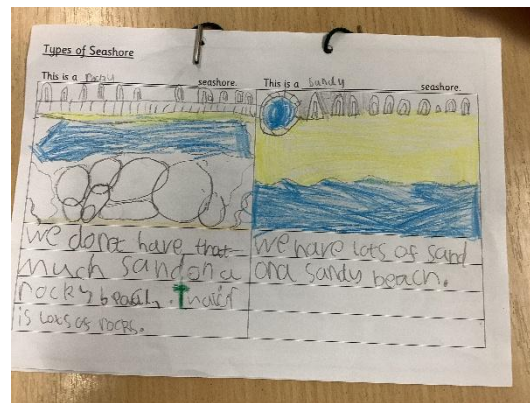 Types of Seashore
This is a rocky seashore.
we dont have that
much sand on a
rocky beach. Thaeir
is lots of rocks.
This is a Sandy seashore.
We have lots of sand
ona sandy beach.